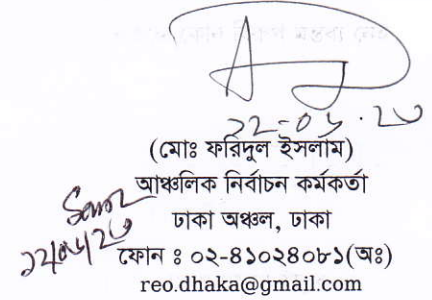 (মোঃ ফরিদুল ইসলাম)
আঞ্চলিক নির্বাচন কর্মকর্তা
ঢাকা অঞ্চল, ঢাকা
ফোন ঃ ০২-৪১০২৪০৮১(অঃ)
reo.dhaka@gmail.com